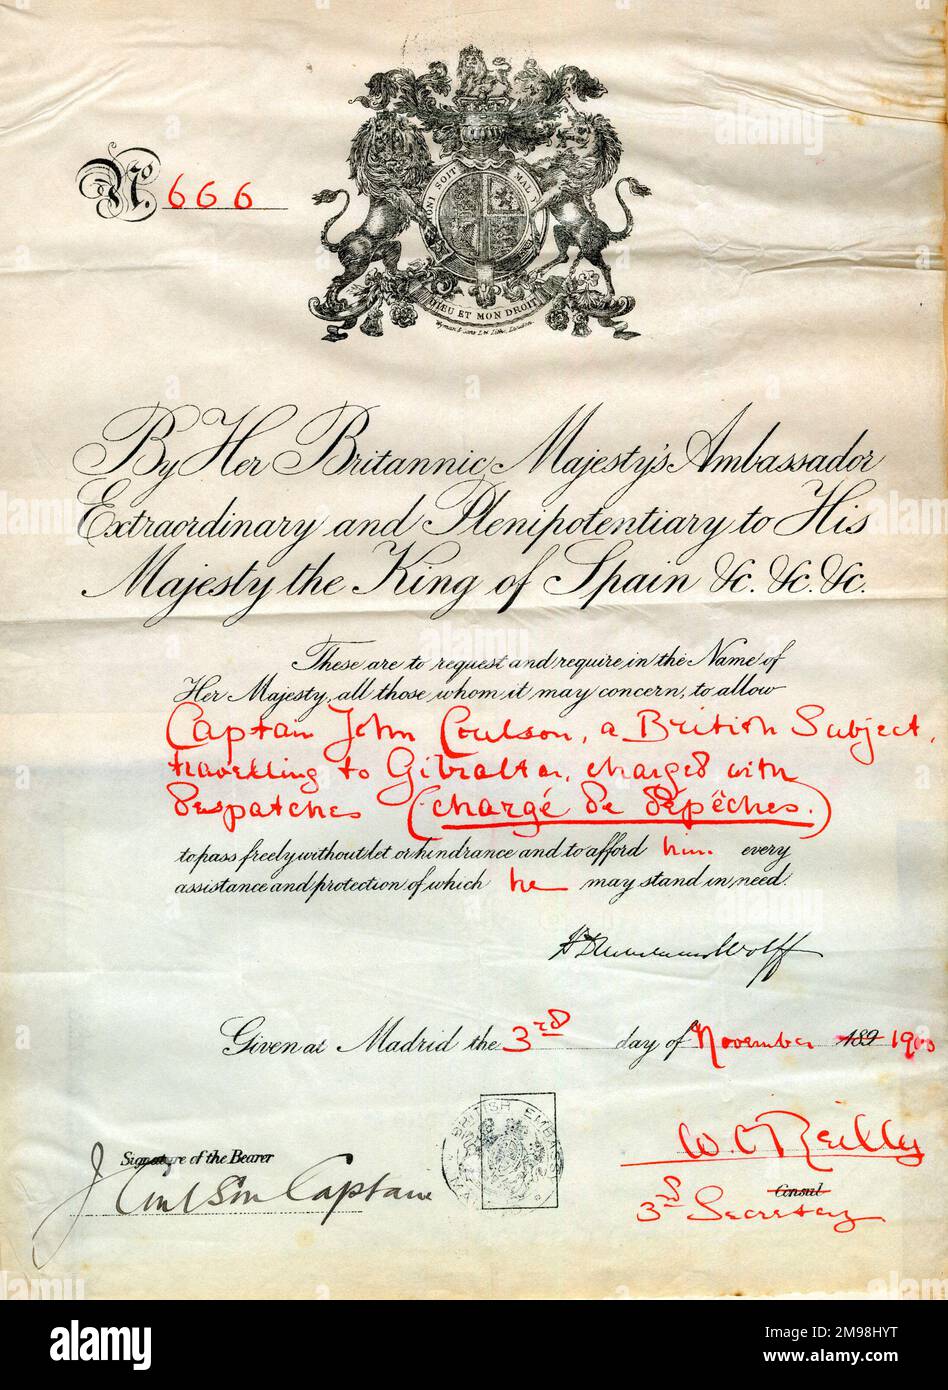 No. 666
HONI SOIT MAL
DIEU ET MON DROIT
Wyman & Sons Ld. Litho, London
By Her Britannic Majesty's Ambassador
Extraordinary and Plenipotentiary to His
Majesty the King of Spain &c. &c. &c.
These are to request and require in the Name of
Her Majesty, all those whom it may concern, to allow
Captain John Coulson, a British Subject,
travelling to Gibraltar, charged with
despatches (chargé de depêches.)
to pass freely without let or hindrance and to afford him every
assistance and protection of which he may stand in need.
H Drummond Wolff
Given at Madrid the 3rd day of November 189 1900
BRITISH EMBASSY
W. O'Reilly
Signature of the Bearer
Consul
J Coulson Captain
3rd Secretary
alamy
Image ID: 2M98HYT
www.alamy.com